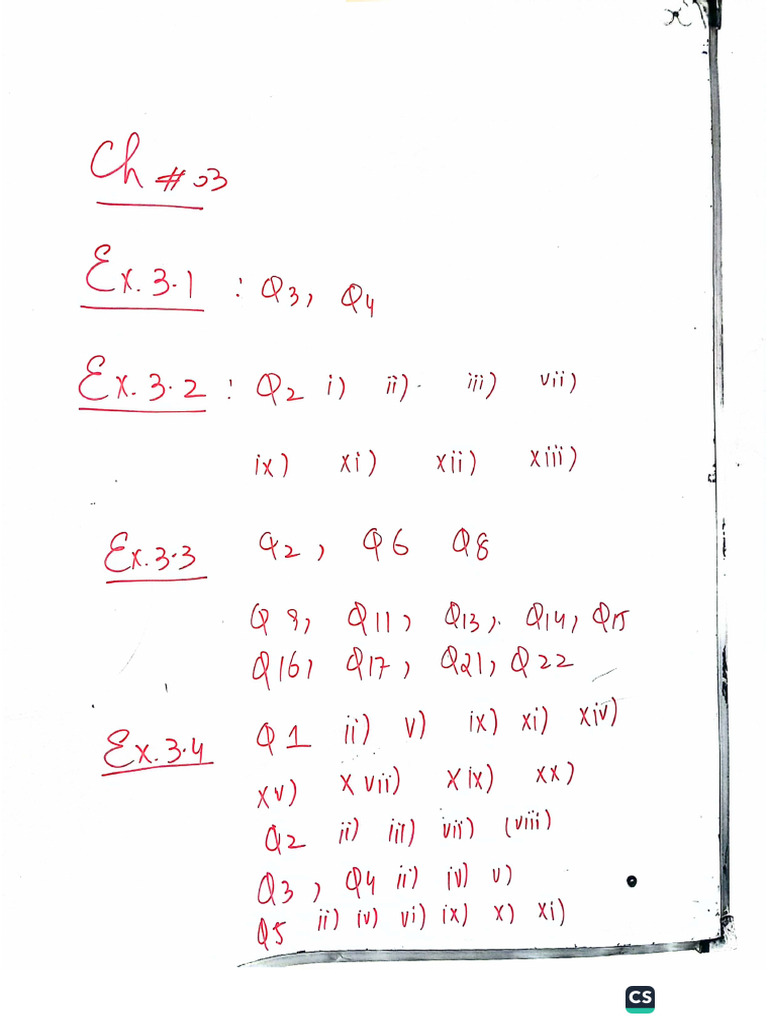 Ch # 03
Ex. 3.1 : Q3, Q4
Ex. 3.2 : Q2 i) ii). iii) vii)
ix) xi) xii) xiii)
Ex. 3.3 Q2, Q6 Q8
Q 9, Q11, Q13, Q14, Q15
Q16, Q17, Q21, Q22
Ex. 3.4 Q1 ii) v) ix) xi) xiv)
xv) xvii) xix) xx)
Q2 ii) iii) vii) (viii)
Q3, Q4 ii) iv) v)
Q5 ii) iv) vi) ix) x) xi)
CS